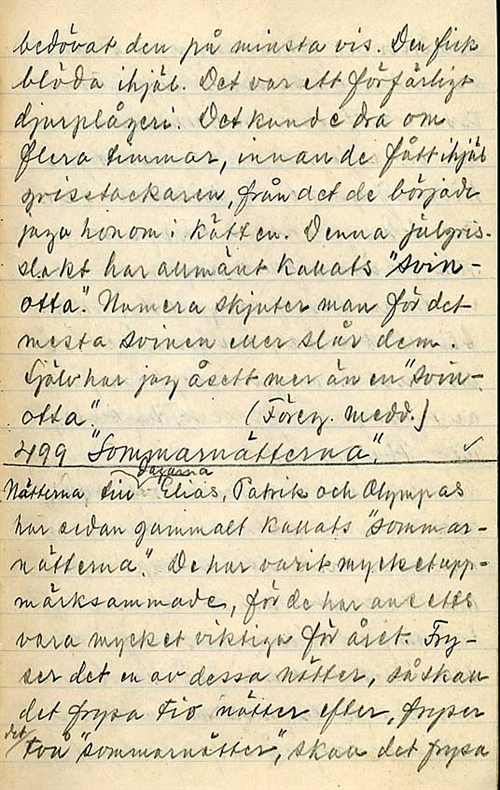 bedövat den på minsta vis. Den fick
blöda ihjäl. Det var ett förfärligt
djurplågeri. Det kunde dra om
flera timmar, innan de fått ihjäl
grisstackaren, från det de började
jaga honom i kätten. Denna julgris-
slakt har allmänt kallats "svin-
otta". Numera skjuter man för det
mesta svinen eller slår dem.
Själv har jag åsett mer än en "svin-
otta". (Föreg. medd.)
499 "Sommarnätterna". ✓
Nätterna till dagarna "Elias, Patrik och Olympas
har sedan gammalt kallats "sommar-
nätterna". De har varit mycket upp-
märksammade, för de har ansetts
vara mycket viktiga för året. Fry-
ser det en av dessa nätter, så skall
det frysa tio nätter efter, fryser
det två "sommarnätter", skall det frysa